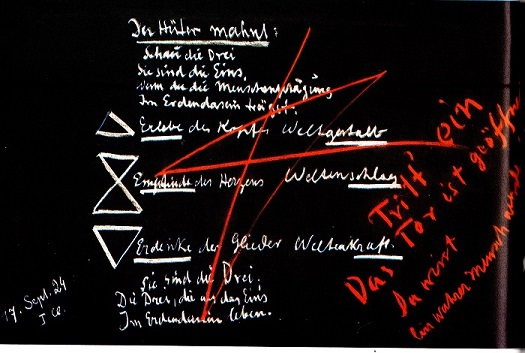 Der Hüter mahnt:
Schau die Drei
Sie sind die Eins,
Wenn du die Menschenprägung
Im Erdendasein trägst.
Erlebe des Kopfes Weltgestalt
Empfinde des Herzens Weltenschlag
Erdenke der Glieder Weltenkraft.
Sie sind die Drei,
Die Drei, die als das Eins
Im Erdendasein leben.
17. Sept. 24
Tritt ein
Das Tor ist
Du wirst
Ein wahrer Mensch